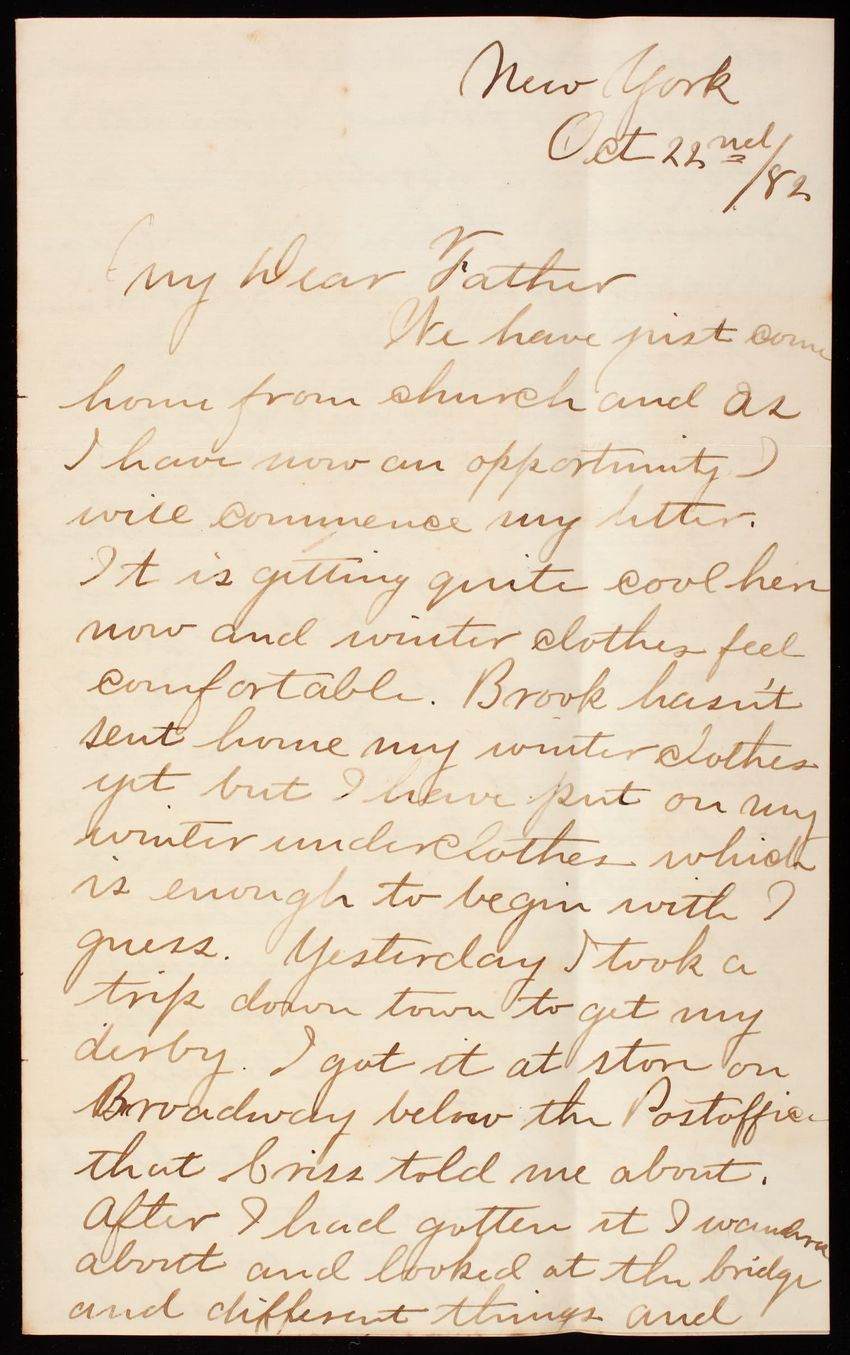 New York
Oct 22nd/82
My Dear Father
We have just come
home from church and as
I have now an opportunity I
will commence my letter.
It is getting quite cool here
now and winter clothes feel
comfortable. Brook hasn't
sent home my winter clothes
yet but I have put on my
winter underclothes which
is enough to begin with I
guess. Yesterday I took a
trip down town to get my
derby. I got it at store on
Broadway below the Postoffice
that Criss told me about.
After I had gotten it I wandered
about and looked at the bridge
and different things and